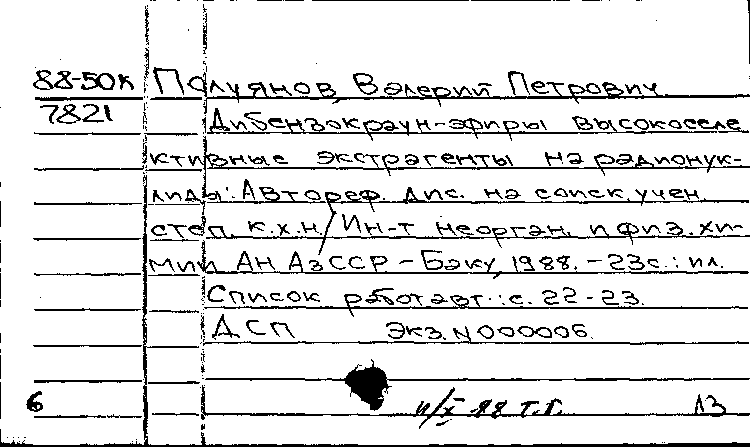 88-50К Полуянов, Валерий Петрович.
7821 Дибензокраун-эфиры высокоселе
ктивные экстрагенты на радионук-
лиды: Автореф. дис. на соиск. учен.
степ. к.х.н./Ин-т неорган. и физ. хи-
мии АН АзССР - Баку, 1988. - 23с.: ил.
Список работ авт.: с. 22-23.
ДСП Экз. N 000006.
6 11/X 88 Т.Г. АЗ